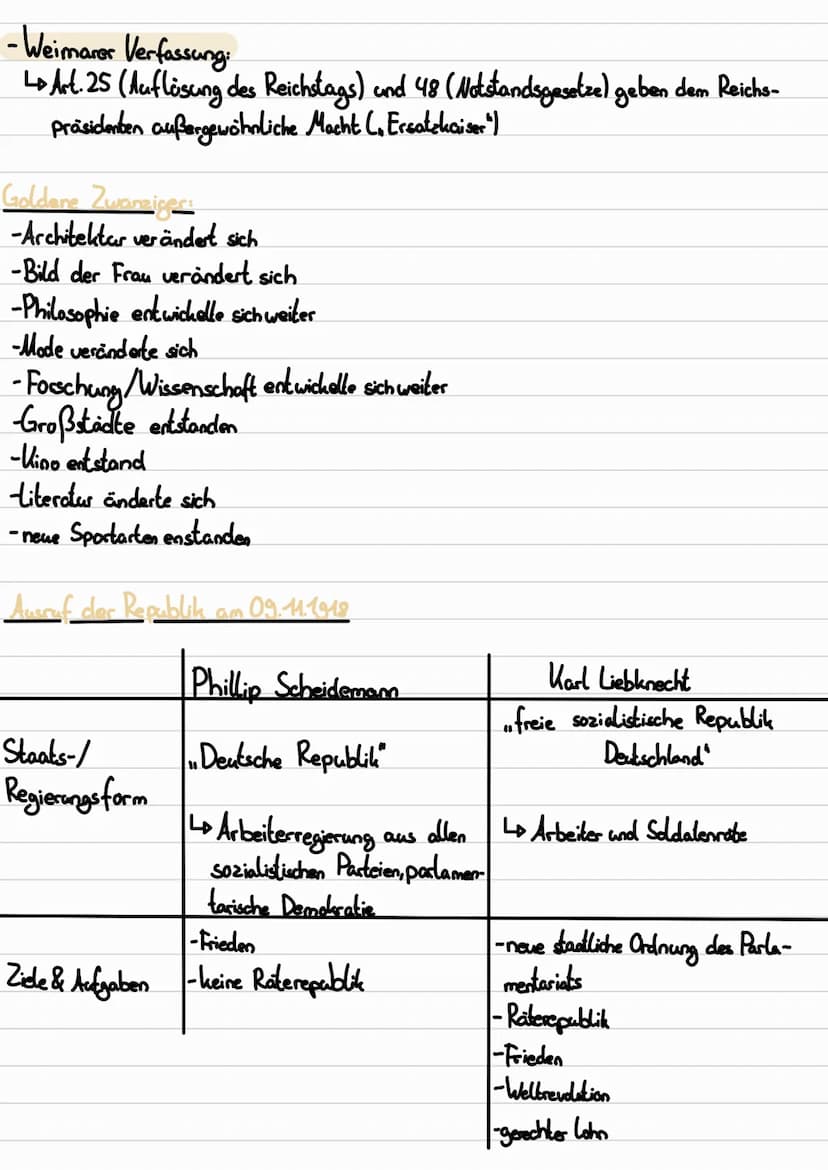 - Weimarer Verfassung:
↳ Art. 25 (Auflösung des Reichstags) und 48 (Notstandsgesetze) geben dem Reichs-
präsidenten außergewöhnliche Macht („Ersatzkaiser")
Goldene Zwanziger:
-Architektur verändert sich
-Bild der Frau verändert sich
-Philosophie entwickelte sich weiter
-Mode veränderte sich
- Forschung/Wissenschaft entwickelte sich weiter
-Großstädte entstanden
-Kino entstand
-Literatur änderte sich
- neue Sportarten enstanden
Ausruf der Republik am 09.11.1918
Phillip Scheidemann
Karl Liebknecht
Staats-/
Regierungsform
„Deutsche Republik"
↳ Arbeiterregierung aus allen
sozialistischen Parteien, parlamen-
tarische Demokratie
„freie sozialistische Republik
Deutschland"
↳ Arbeiter und Soldatenräte
Ziele & Aufgaben
-Frieden
-keine Räterepublik
-neue staatliche Ordnung des Parla-
mentariats
- Räterepublik
-Frieden
-Weltrevolution
-gerechter Lohn